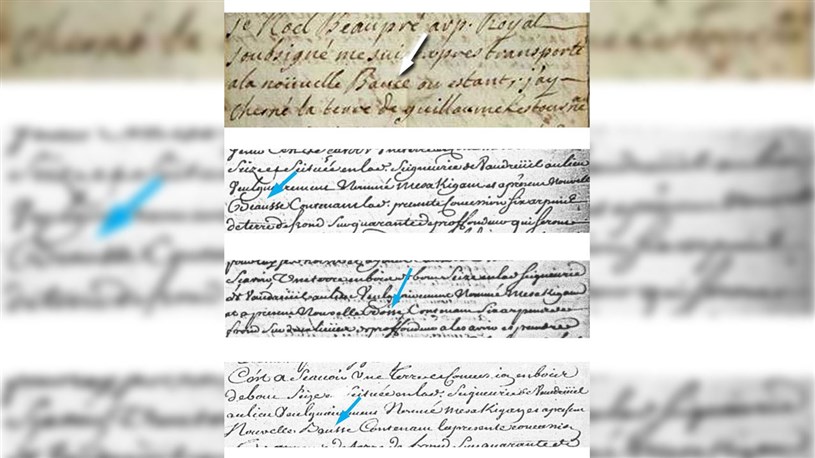 Je Noel Beaupré arp. Royal
soubsigné me suis expres transporté
ala noüvelle Bauce ou estant, jay
cherné la terre de guillaume
Seize et Scituée en lad. Seigneurie de Vaudreüil au lieu
Vulguerement Nommé mesakigan et apresent Nouvelle
Beausse Contenant lad. presente Concession six arpents
de terre de frond sur quarante de proffondeur qui seront
Scavoir Une terre en bois de bout Seize en lad Seigneurie
de Vaudreüil au lieu Vulguairement Nommé mesakigan
et apresent Nouvelle Contenant Six arpents de
frond sur de proffondeur a les avoir et prendre
C'est a Scavoir Une terre et en bois
de bout Size et Scituée en lad. Seigneurie de Vaudreüil
au lieu Nommé mesakigan et apresent
Nouvelle Bausse Contenant la presente concession
de terre de frond Sur quarante de